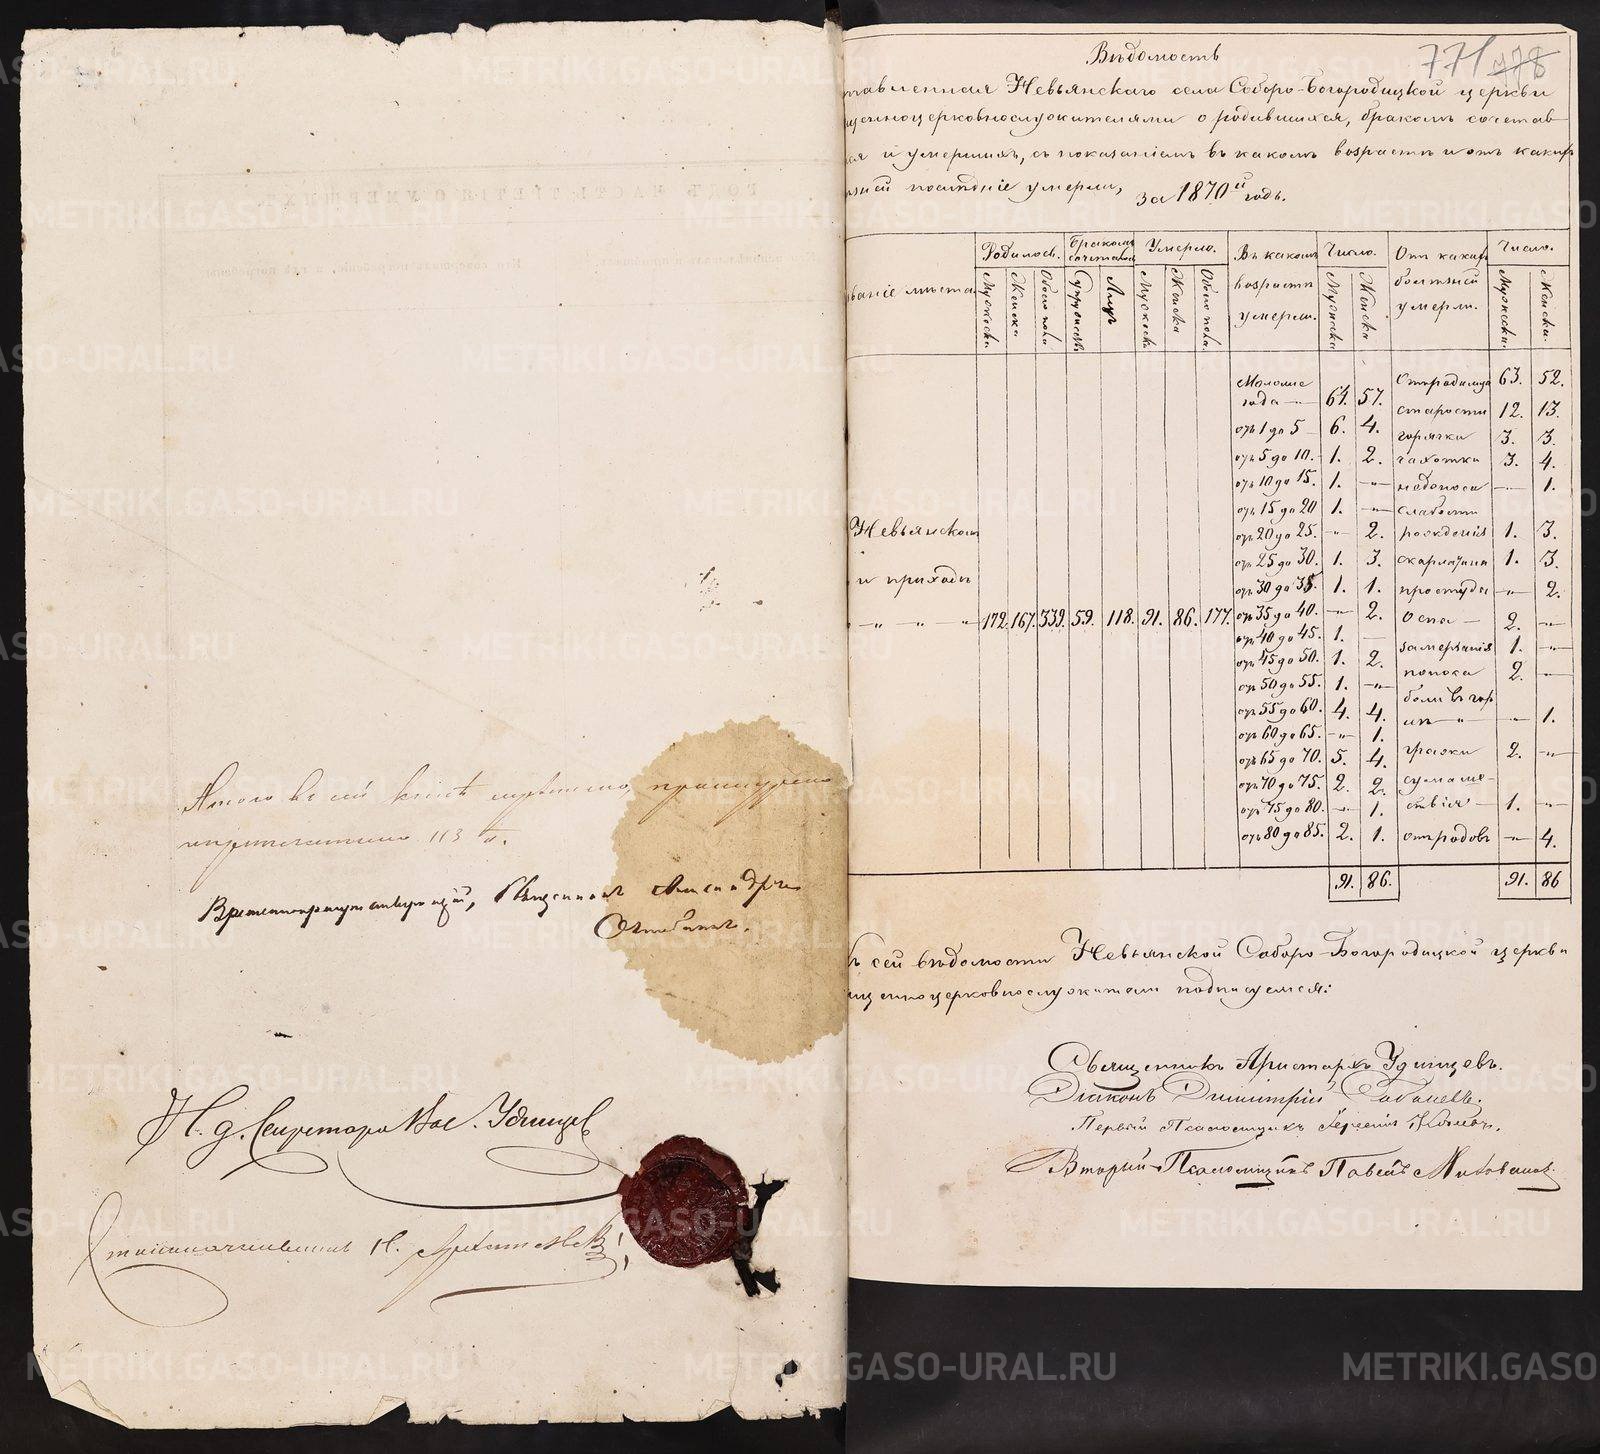 Итого въ сей книгѣ
113 л.
Временноприсутствующій, Священникъ Александръ
И. д. Секретаря Вас. Удинцев
Столоначальникъ И.
771 778
Вѣдомость
ставленная Невьянскаго села Соборо-Богородицкой церкви
щенноцерковнослужителями о родившихся, бракомъ сочетав
ся и умершихъ, съ показаніемъ въ какомъ возрастѣ и отъ какихъ
зней послѣдніе умерли,
за 1870й годъ.
Родилось. Бракомъ сочеталось Умерло. Въ какомъ возрастѣ умерли. Число. Отъ какихъ болѣзней умерли. Число.
ваніе мѣста Мужеска. Женска. Обоего пола Супружествъ Лицъ Мужеска. Женска Обоего пола. Мужеска Женска Мужеска. Женска.
Моложе года — 64. 57. Отъ родимца 63. 52.
старости 12. 13.
отъ 1 до 5 — 6. 4. горячки 3. 3.
отъ 5 до 10. 1. 2. чахотки 3. 4.
отъ 10 до 15. 1. —„— недоноса —„— 1.
отъ 15 до 20 1. —„— слабости
отъ 20 до 25. —„— 2. рожденія 1. 3.
Невьянскомъ
отъ 25 до 30. 1. 3. скарлатина 1. 3.
и приходѣ
отъ 30 до 35. 1. 1. простуды —„— 2.
— „ — „ — „ 172. 167. 339. 59. 118. 91. 86. 177. отъ 35 до 40. — 2. Оспа — 2. —„—
отъ 40 до 45. 1. — замерзанія 1. —„—
отъ 45 до 50. 1. 2. поноса 2. —
отъ 50 до 55. 1. —„— боли въ гор
отъ 55 до 60. 4. 4. лѣ —„— —„— 1.
отъ 60 до 65. —„— 1.
отъ 65 до 70. 5. 4. грыжи 2. —„—
отъ 70 до 75. 2. 2. сумаше-
отъ 75 до 80. —„— 1. ствія — 1. —„—
отъ 80 до 85. 2. 1. отъ родовъ —„— 4.
91. 86. 91. 86
ъ сей вѣдомости Невьянской Соборо-Богородицкой церкви
щенноцерковнослужители подписуемся:
Священникъ Аристархъ Удинцевъ.
Діаконъ Димитрій
Первый Псаломщикъ
Второй Псаломщикъ Павелъ